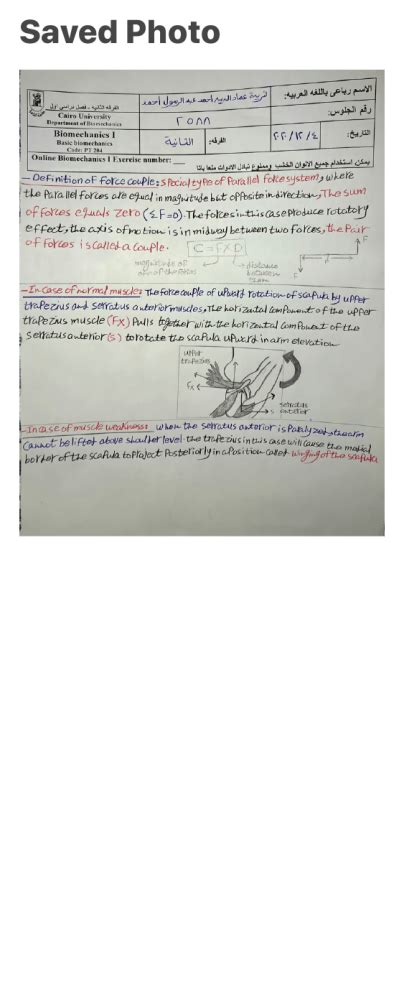 Saved Photo
الاسم رباعى باللغه العربيه:
احمد عبد الرسول احمد
الفرقه الثانيه - فصل دراسي اول
Cairo University
Department of Biomechanics
رقم الجلوس:
٢٥٨٨
Biomechanics I
Basic biomechanics
Code: PT 204
الفرقه: الثانية
التاريخ: ٢٢/١٢/٤
Online Biomechanics I Exercise number: ___
يمكن استخدام جميع الالوان الخشب وممنوع تبادل الادوات منعا باتا
- Definition of force couple: special type of Parallel force system, where
the Parallel forces are equal in magnitude but opposite in direction, The sum
of forces equals zero (ΣF=0). The forces in this case Produce rotatory
effect, the axis of motion is in midway between two forces, the Pair
of forces is called a couple.
C = F X D
magnitude of one of the forces
distance between them
F
F
- In case of normal muscles: The force couple of upward rotation of scapula by upper
trapezius and serratus anterior muscles, The horizontal component of the upper
trapezius muscle (Fx) Pulls together with the horizontal component of the
serratus anterior (S) to rotate the scapula upward in arm elevation
upper
trapezius
Fx
serratus
S anterior
- In case of muscle weakness: when the serratus anterior is Paralyzed, the arm
Cannot be lifted above shoulder level. the trapezius in this case will cause the medial
border of the scapula to Project Posteriorly in a Position called winging of the scapula